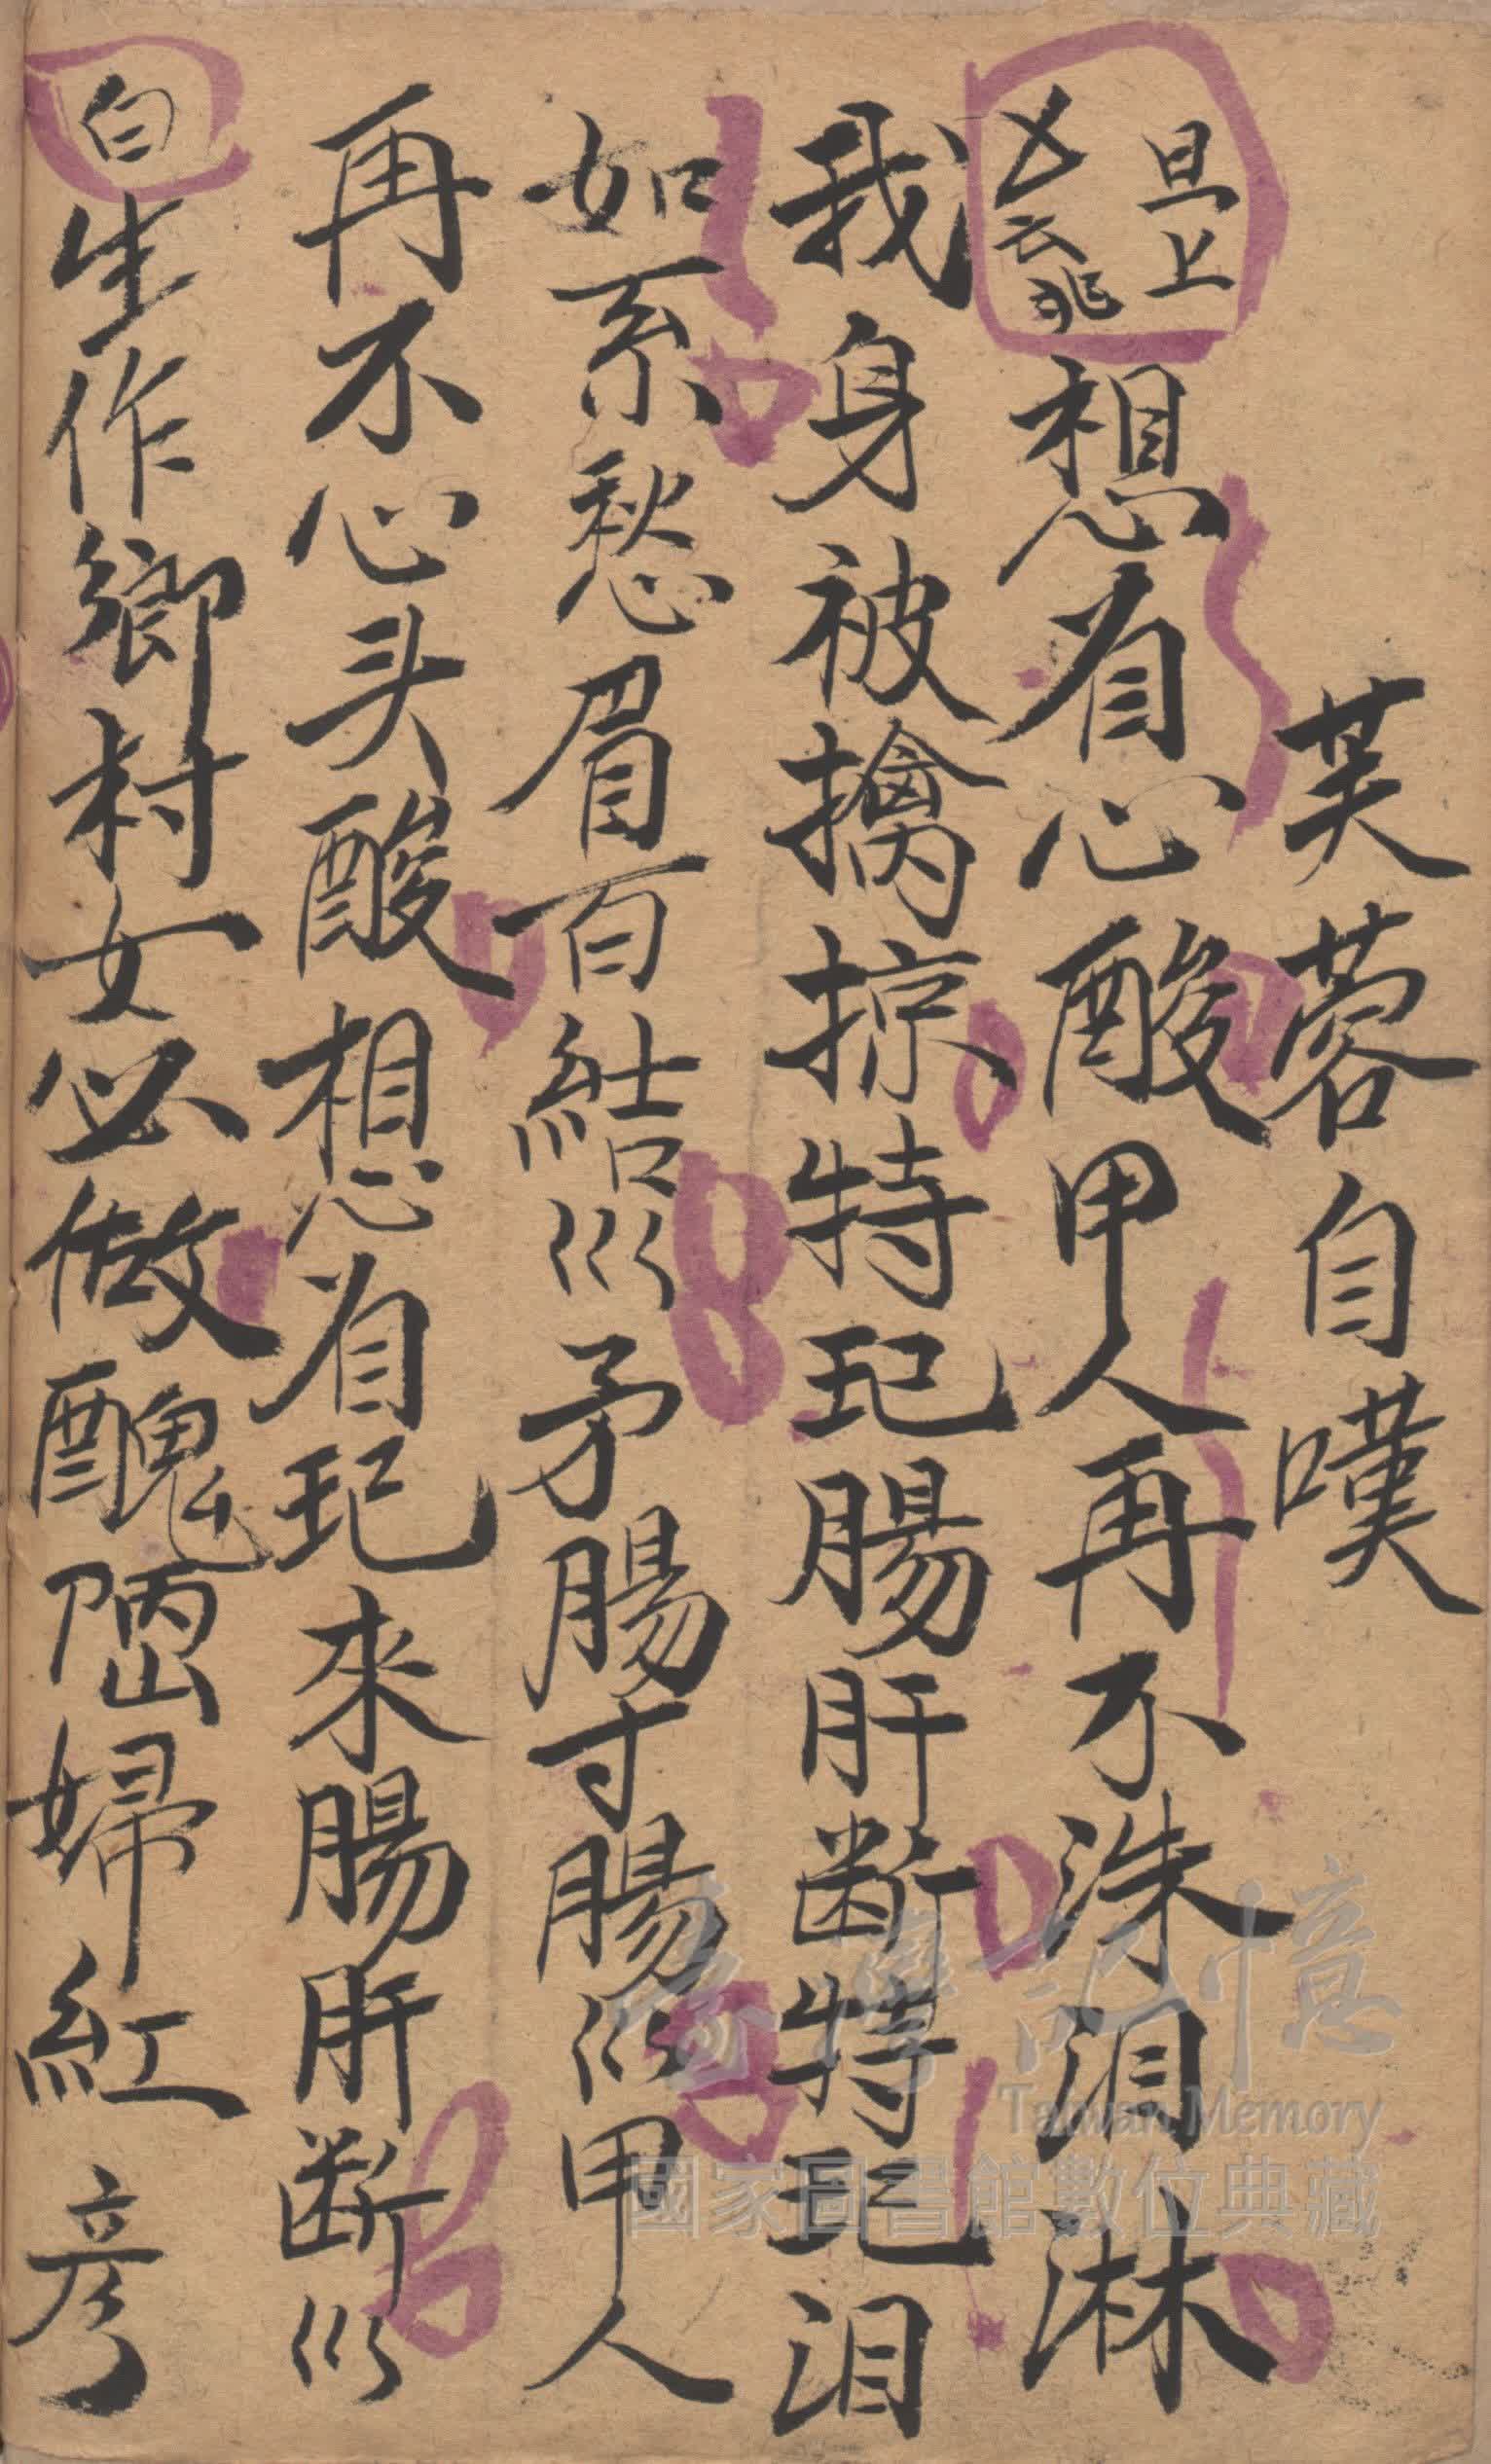 芙蓉自嘆
旦上
想肴心酸甲人再不洙泪淋
我身被擒掠特玘腸肝断特玘泪
如系愁眉百結〻矛腸寸腸〻甲人
再不心头酸想肴玘來腸肝断〻
白生作鄉村女必做醜陋婦紅彦
臺灣記憶
Taiwan Memory
國家圖書館數位典藏